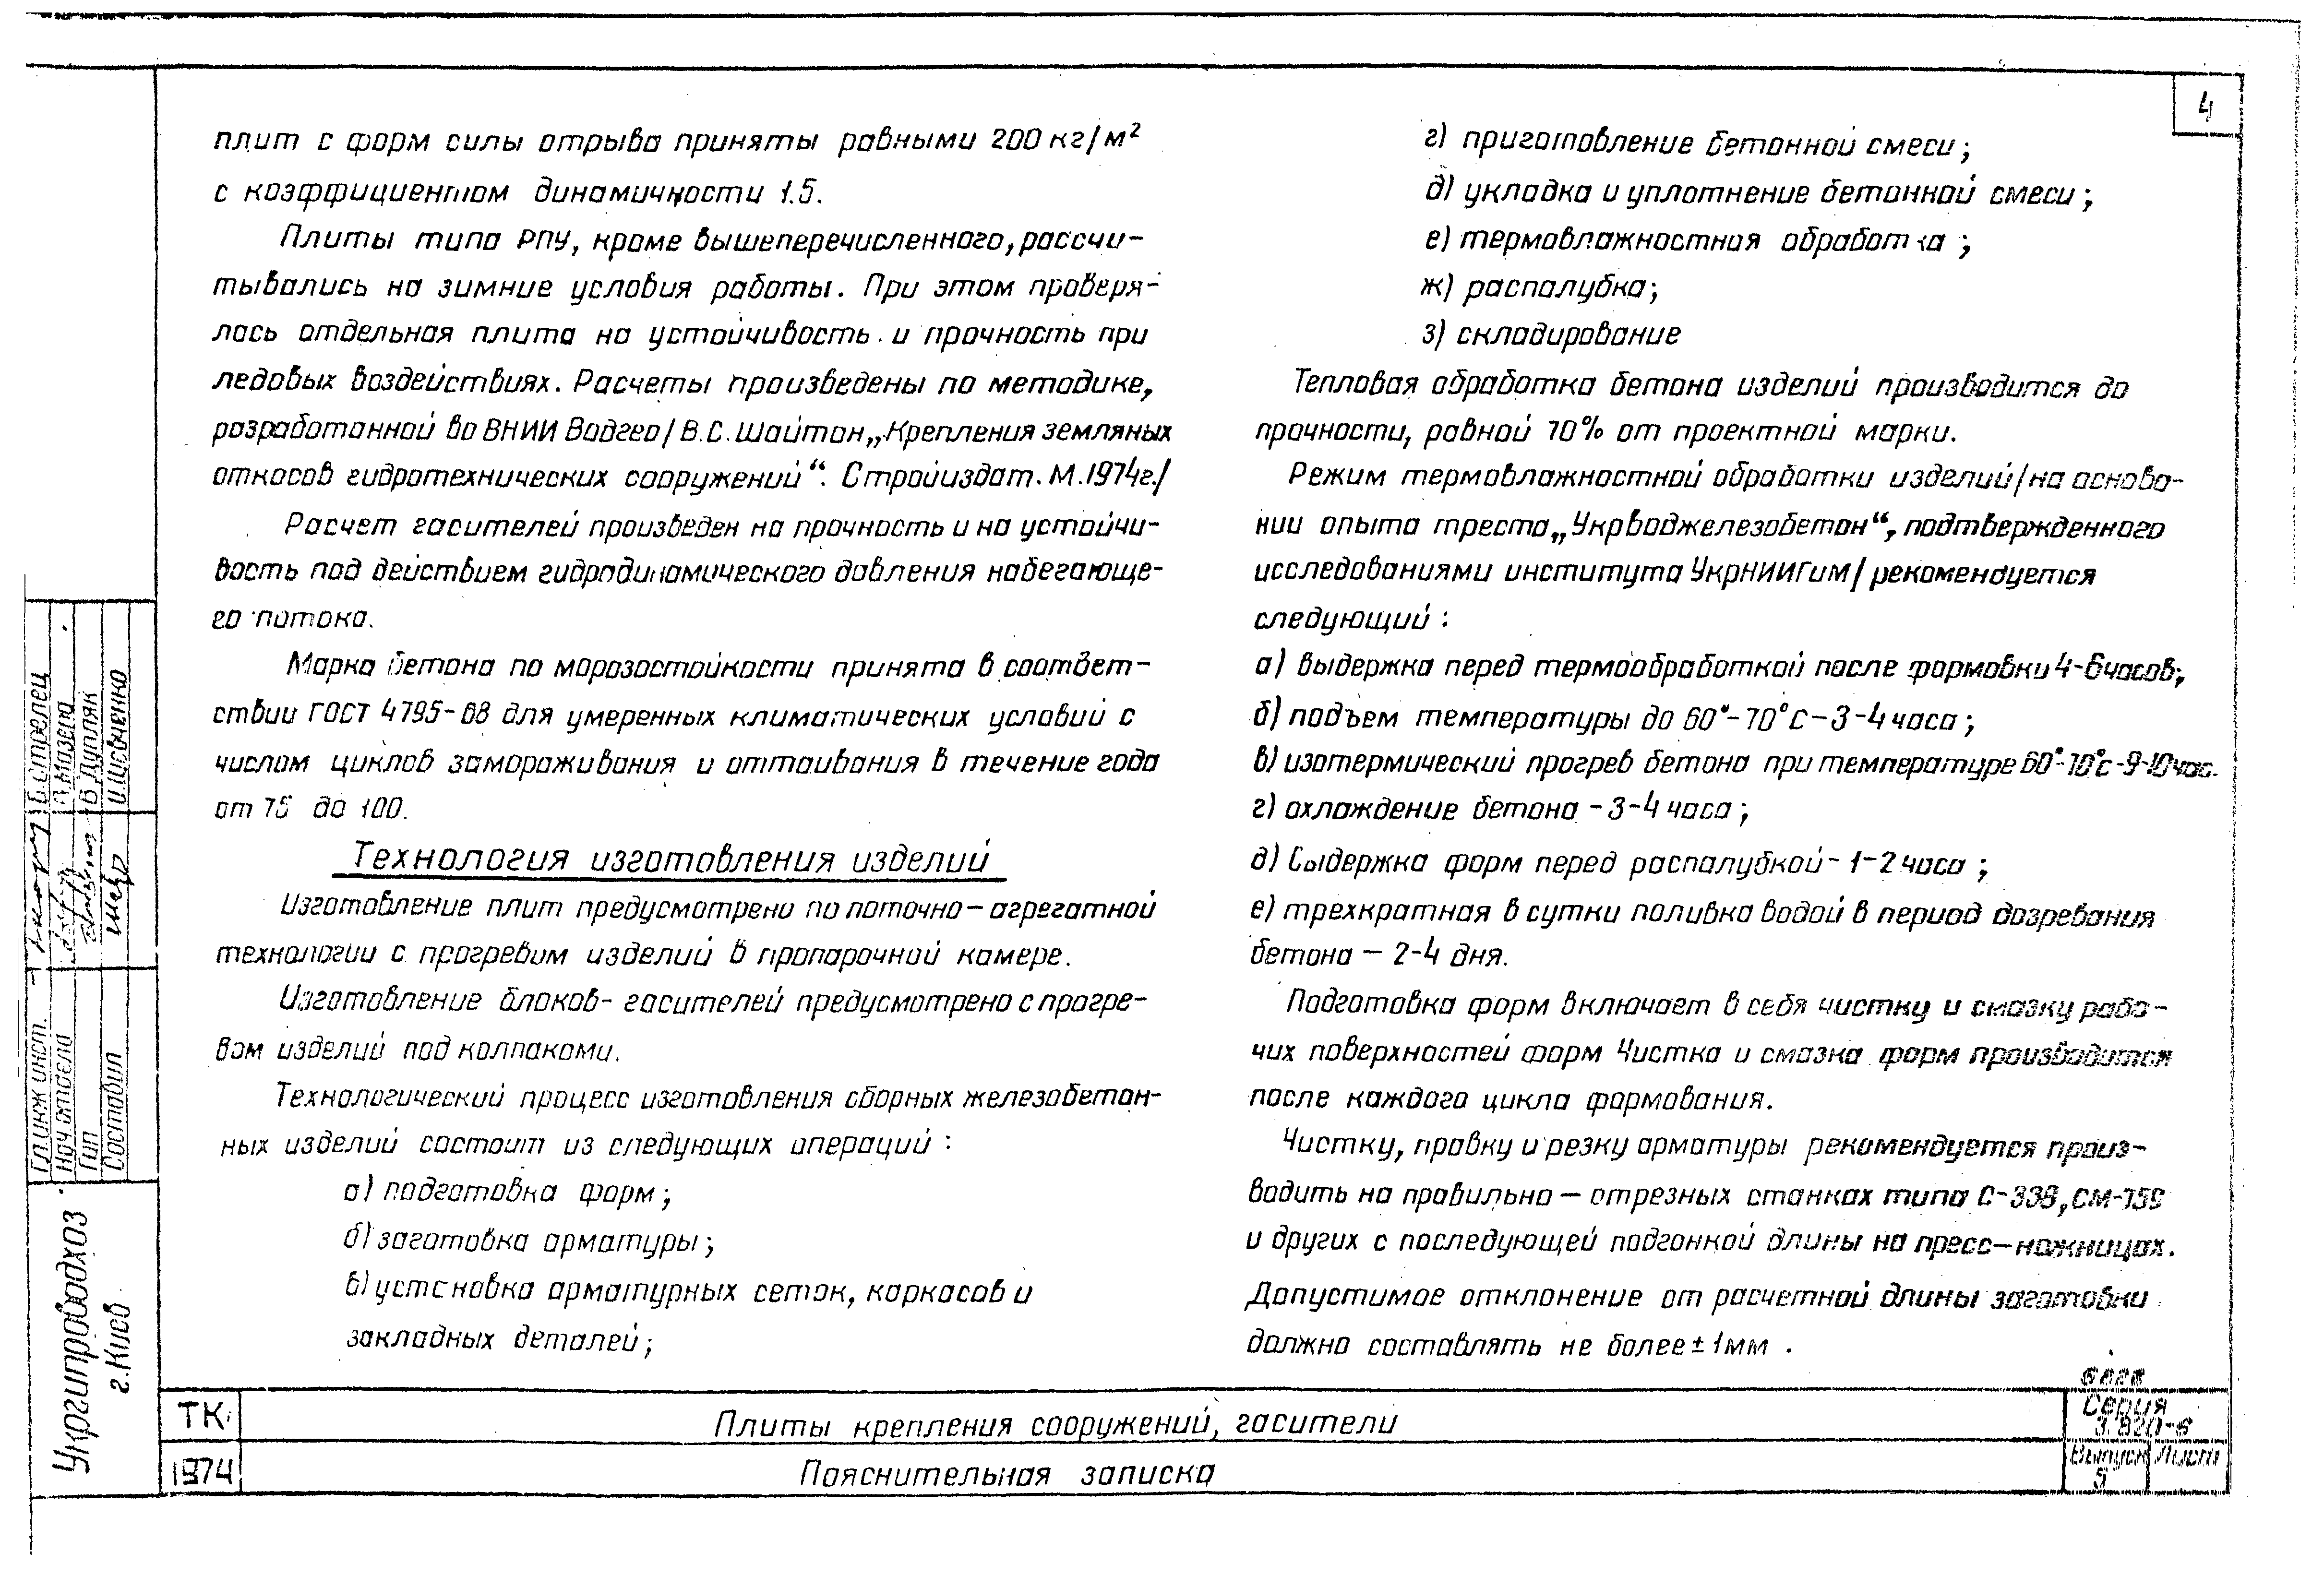 4
плит с форм силы отрыва приняты равными 200 кг/м²
с коэффициентом динамичности 1.5.
Плиты типа РПУ, кроме вышеперечисленного, рассчи-
тывались на зимние условия работы. При этом проверя-
лась отдельная плита на устойчивость и прочность при
ледовых воздействиях. Расчеты произведены по методике,
разработанной во ВНИИ Водгео / В.С. Шайтан „Крепления земляных
откосов гидротехнических сооружений“. Стройиздат. М. 1974г./
Расчет гасителей произведен на прочность и на устойчи-
вость под действием гидродинамического давления набегающе-
го потока.
Марка бетона по морозостойкости принята в соответ-
ствии ГОСТ 4795-68 для умеренных климатических условий с
числом циклов замораживания и оттаивания в течение года
от 75 до 100.
Технология изготовления изделий
Изготовление плит предусмотрено по поточно-агрегатной
технологии с прогревом изделий в пропарочной камере.
Изготовление блоков-гасителей предусмотрено с прогре-
вом изделий под колпаками.
Технологический процесс изготовления сборных железобетон-
ных изделий состоит из следующих операций:
а) подготовка форм;
б) заготовка арматуры;
в) установка арматурных сеток, каркасов и
закладных деталей;
г) приготовление бетонной смеси;
д) укладка и уплотнение бетонной смеси;
е) термовлажностная обработка;
ж) распалубка;
з) складирование
Тепловая обработка бетона изделий производится до
прочности, равной 70% от проектной марки.
Режим термовлажностной обработки изделий /на основа-
нии опыта треста „Укрводжелезобетон“, подтвержденного
исследованиями института УкрНИИГиМ/ рекомендуется
следующий:
а) выдержка перед термообработкой после формовки 4-6 часов;
б) подъем температуры до 60°-70°С-3-4 часа;
в) изотермический прогрев бетона при температуре 60°-70°с-9-10 час.
г) охлаждение бетона - 3-4 часа;
д) Выдержка форм перед распалубкой - 1-2 часа;
е) трехкратная в сутки поливка водой в период дозревания
бетона - 2-4 дня.
Подготовка форм включает в себя чистку и смазку рабо-
чих поверхностей форм Чистка и смазка форм производится
после каждого цикла формования.
Чистку, правку и резку арматуры рекомендуется произ-
водить на правильно-отрезных станках типа С-338, СМ-759
и других с последующей подгонкой длины на пресс-ножницах.
Допустимое отклонение от расчетной длины заготовки
должно составлять не более ± 1мм.
Гл.инж инст. Б.Стрелец
Нач отдела Мазепа
Гип В Дупляк
Составил И.Шевченко
Укргипроводхоз
г. Киев
ТК
1974
Плиты крепления сооружений, гасители
Пояснительная записка
Серия
3.820-6
Выпуск
5
Лист